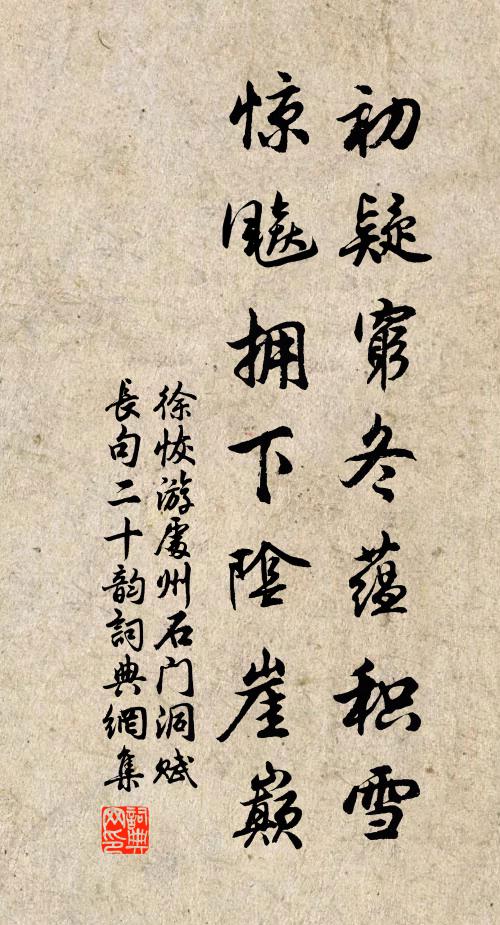 初疑窮冬蕴积雪
惊飚拥下陰崖巅
徐恢游處州石门洞赋
長句二十韵詞典網集
詞典
网印